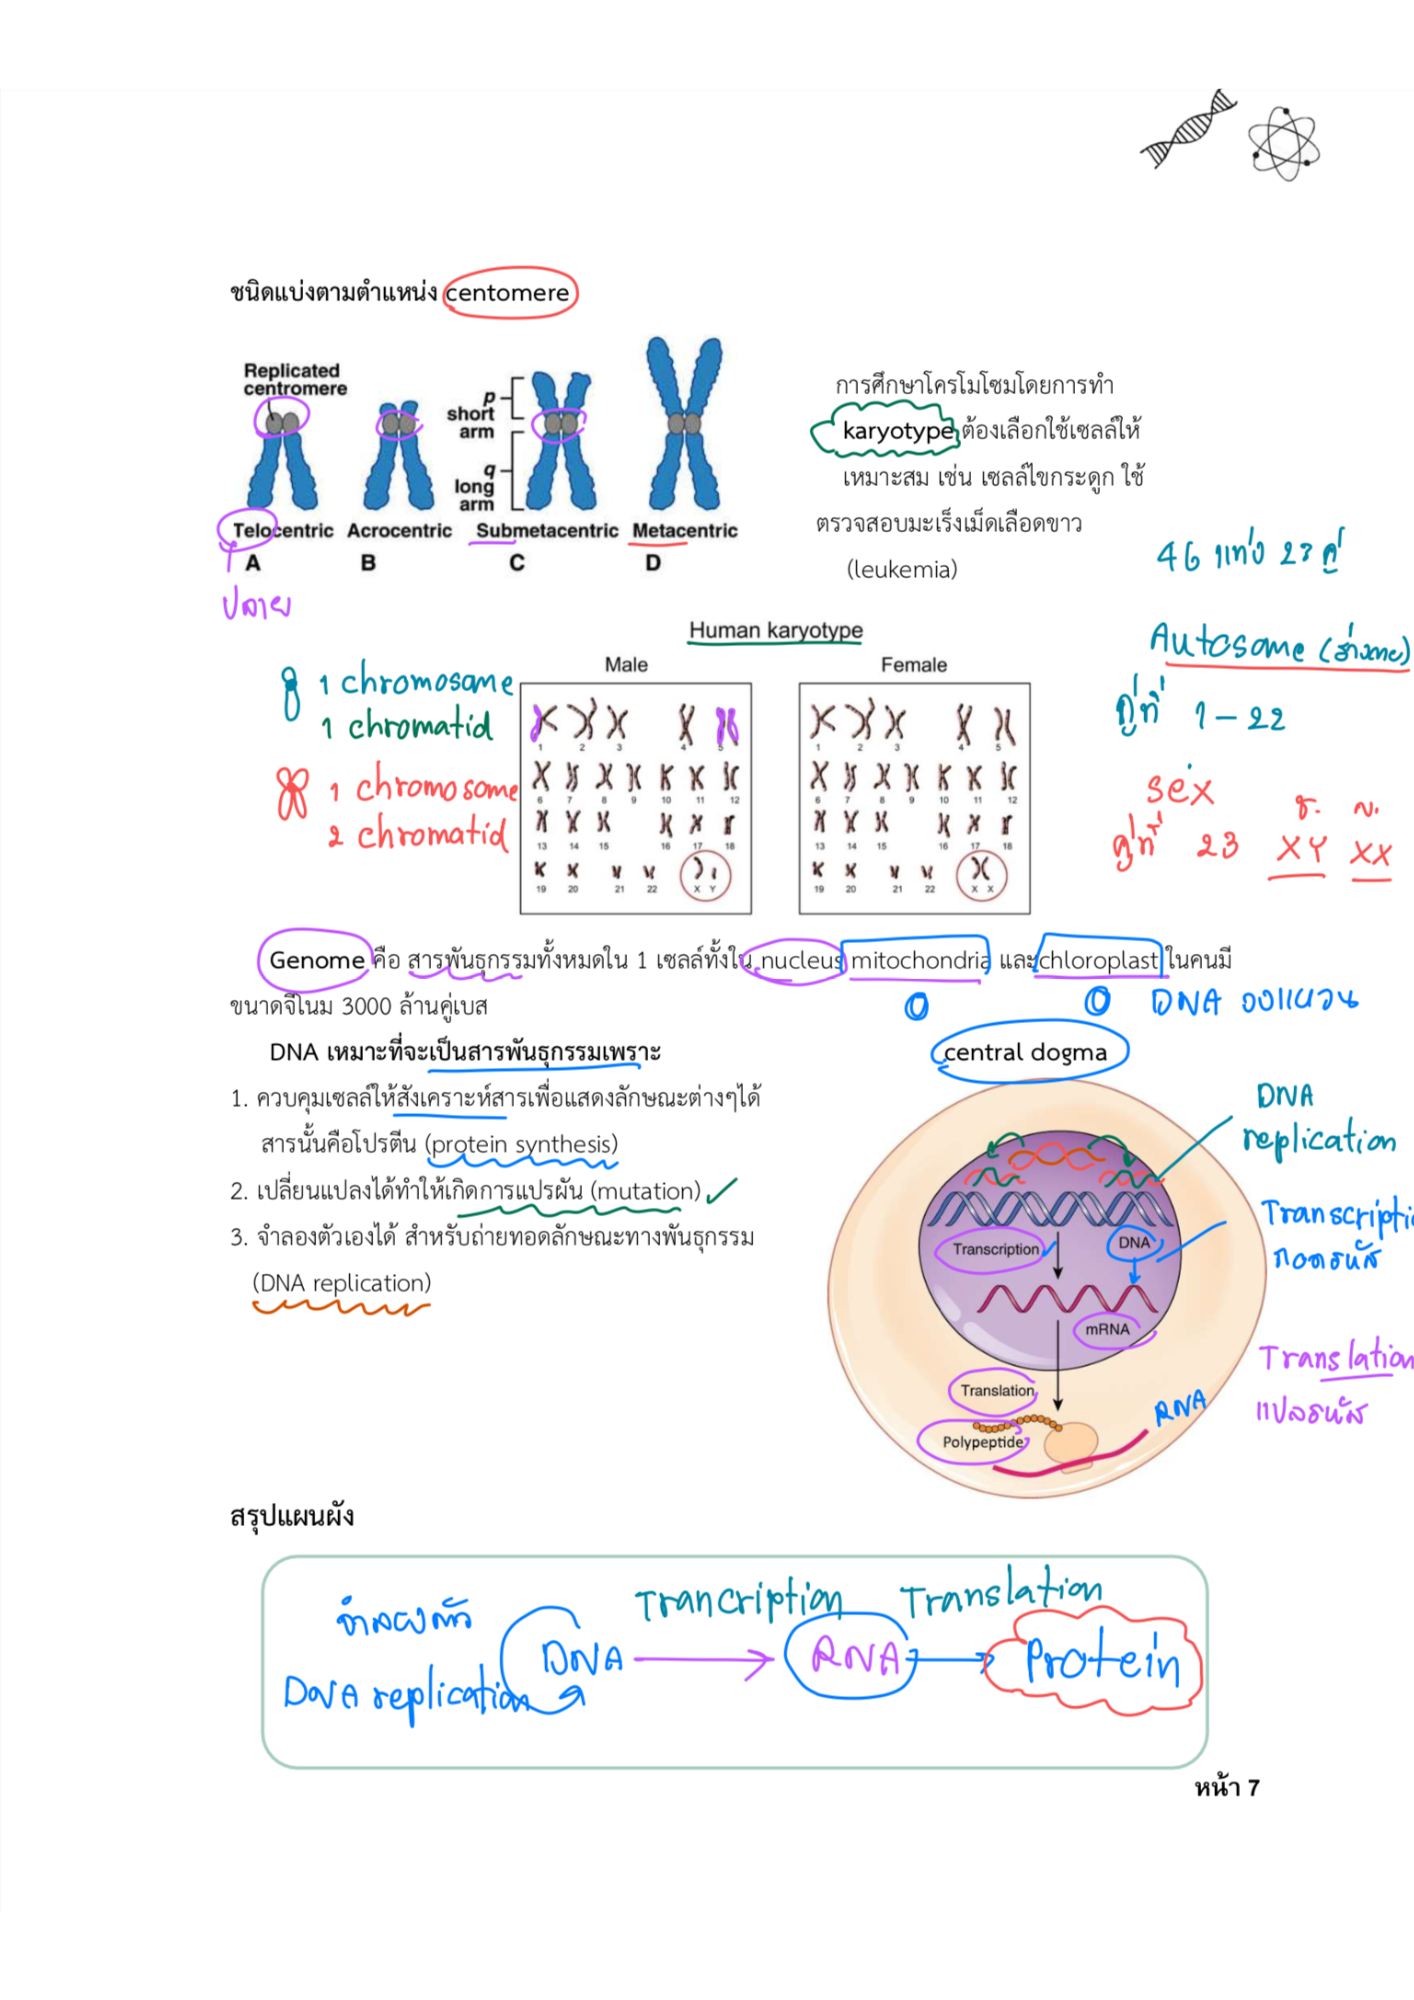 ชนิดแบ่งตามตำแหน่ง centomere
Replicated
centromere
p
short
arm
q
long
arm
Telocentric Acrocentric Submetacentric Metacentric
A B C D
ปลาย
การศึกษาโครโมโซมโดยการทำ
karyotype ต้องเลือกใช้เซลล์ให้
เหมาะสม เช่น เซลล์ไขกระดูก ใช้
ตรวจสอบมะเร็งเม็ดเลือดขาว
(leukemia)
46 แท่ง 23 คู่
Autosome (ร่างกาย)
คู่ที่ 1-22
sex
ช. ญ.
คู่ที่ 23 XY XX
Human karyotype
Male Female
1 chromosome
1 chromatid
1 chromosome
2 chromatid
1 2 3 4 5
6 7 8 9 10 11 12
13 14 15 16 17 18
19 20 21 22 X Y
1 2 3 4 5
6 7 8 9 10 11 12
13 14 15 16 17 18
19 20 21 22 X X
Genome คือ สารพันธุกรรมทั้งหมดใน 1 เซลล์ทั้งใน nucleus mitochondria และ chloroplast ในคนมี
ขนาดจีโนม 3000 ล้านคู่เบส
DNA วงแหวน
DNA เหมาะที่จะเป็นสารพันธุกรรมเพราะ
1. ควบคุมเซลล์ให้สังเคราะห์สารเพื่อแสดงลักษณะต่างๆได้
สารนั้นคือโปรตีน (protein synthesis)
2. เปลี่ยนแปลงได้ทำให้เกิดการแปรผัน (mutation)
3. จำลองตัวเองได้ สำหรับถ่ายทอดลักษณะทางพันธุกรรม
(DNA replication)
central dogma
DNA
replication
Transcripti
ถอดรหัส
Transcription
DNA
mRNA
Translation
แปลรหัส
Translation
RNA
Polypeptide
สรุปแผนผัง
Trancription Translation
จำลองตัว
DNA RNA Protein
DNA replication
หน้า 7